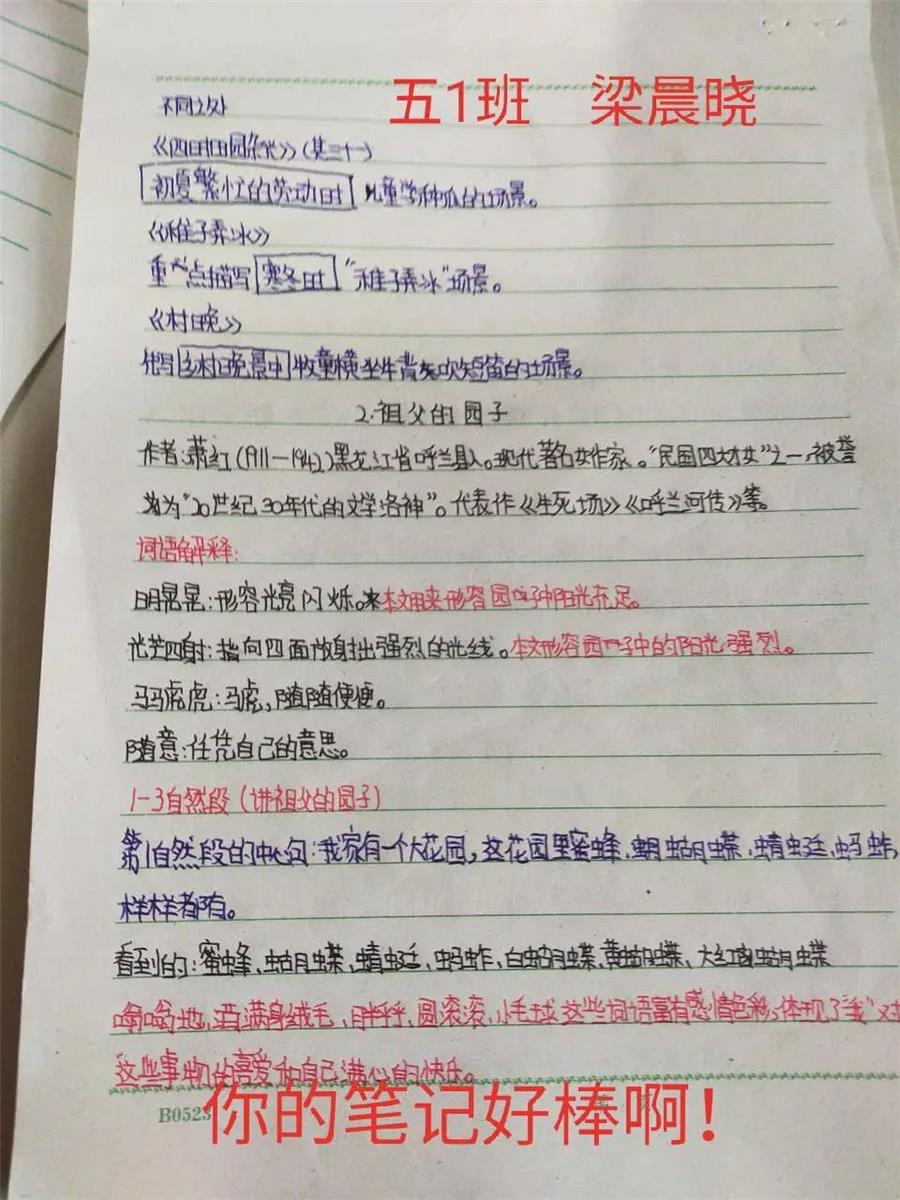 五1班 梁晨晓
不同之处
《四时田园杂兴》(其三十一)
初夏繁忙的劳动时 儿童学种瓜的场景。
《稚子弄冰》
重点描写 寒冬时 "稚子弄冰"场景。
《村晚》
描写 乡村晚景中 牧童横坐牛背矢吹短笛的场景。
2.祖父的园子
作者:萧红(1911—1942)黑龙江省呼兰县人。现代著名女作家。"民国四大才女"之一,被誉
为"20世纪30年代的文学洛神"。代表作《生死场》《呼兰河传》等。
词语解释:
明晃晃:形容光亮闪烁。本文用来形容园子中阳光充足。
光芒四射:指向四面放射出强烈的光线。本文形容园子中的阳光强烈。
马马虎虎:马虎,随随便便。
随意:任凭自己的意思。
1-3自然段(讲祖父的园子)
第1自然段的中心句:我家有一个大花园,这花园里蜜蜂、蝴蝶、蜻蜓、蚂蚱,
样样都有。
看到的:蜜蜂、蝴蝶、蜻蜓、蚂蚱、白蝴蝶、黄蝴蝶、大红蝴蝶
嗡嗡地、满身绒毛、胖乎乎、圆滚滚、小毛球 这些词语富有感情色彩,体现了"我"对
这些事物的喜爱和自己满心的快乐。
B0523
你的笔记好棒啊!